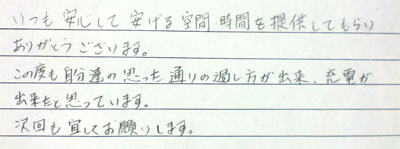 いつも 安心して 安げる 空間 時間を 提供してもらい
ありがとうございます。
この度も自分達の思った通りの過し方が出来、充電が
出来たと思っています。
次回も宜してお願いします。